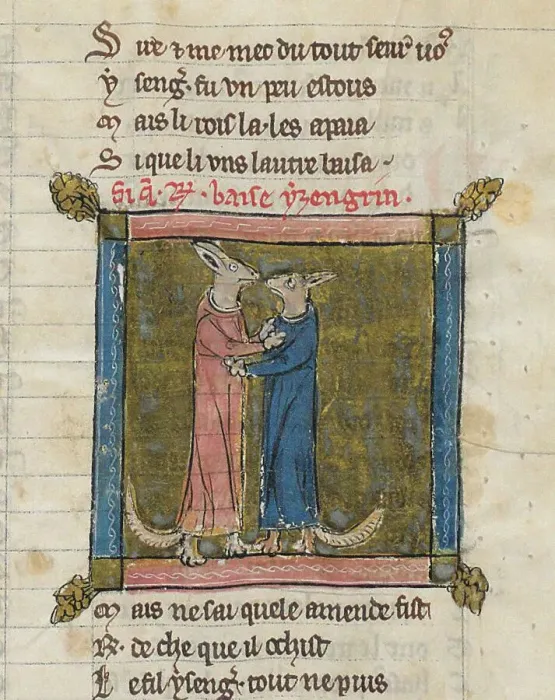 S ire ⁊ me mec du tout seur uoꝰ
Y seng̃. fu vn peu estous
M ais li rois la. les apaia
S i que li vns lautre baisa
Si q̃. R. baise yzengrin.
M ais ne sai quele amende fist
R. de che que il ochist
L e fil yseng̃. tout ne puis